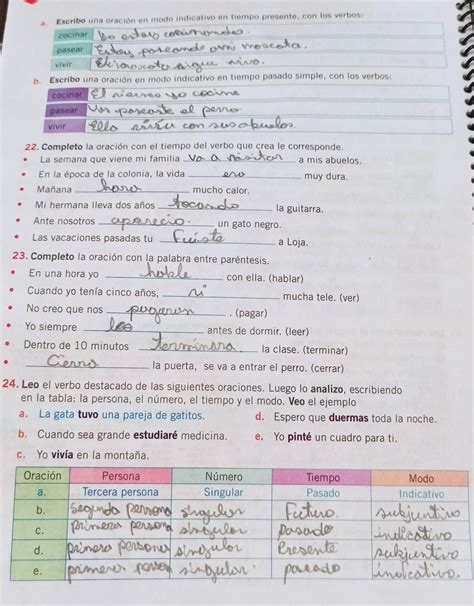 a. Escribo una oración en modo indicativo en tiempo presente, con los verbos:
cocinar Yo estoy cocinando.
pasear Estoy paseando a mi mascota.
vivir El sigue vivo.
b. Escribo una oración en modo indicativo en tiempo pasado simple, con los verbos:
cocinar El viernes yo cocine
pasear paseaste el perro
vivir Ella con sus abuelos.
22. Completo la oración con el tiempo del verbo que crea le corresponde.
• La semana que viene mi familia va a visitar a mis abuelos.
• En la época de la colonia, la vida era muy dura.
• Mañana hara mucho calor.
• Mi hermana lleva dos años tocando la guitarra.
• Ante nosotros aparecio. un gato negro.
• Las vacaciones pasadas tu Fuiste a Loja.
23. Completo la oración con la palabra entre paréntesis.
• En una hora yo hable con ella. (hablar)
• Cuando yo tenía cinco años, vi mucha tele. (ver)
• No creo que nos pagaron . (pagar)
• Yo siempre leo antes de dormir. (leer)
• Dentro de 10 minutos terminara la clase. (terminar)
• Cierra la puerta, se va a entrar el perro. (cerrar)
24. Leo el verbo destacado de las siguientes oraciones. Luego lo analizo, escribiendo
en la tabla: la persona, el número, el tiempo y el modo. Veo el ejemplo
a. La gata tuvo una pareja de gatitos. d. Espero que duermas toda la noche.
b. Cuando sea grande estudiaré medicina. e. Yo pinté un cuadro para ti.
c. Yo vivía en la montaña.
Oración Persona Número Tiempo Modo
a. Tercera persona Singular Pasado Indicativo
b. segunda persona singular Futuro. subjuntivo
c. primera persona singular pasado indicativo
d. primera persona singular Presente subjuntivo
e. primera person singular. pasado indicativo.